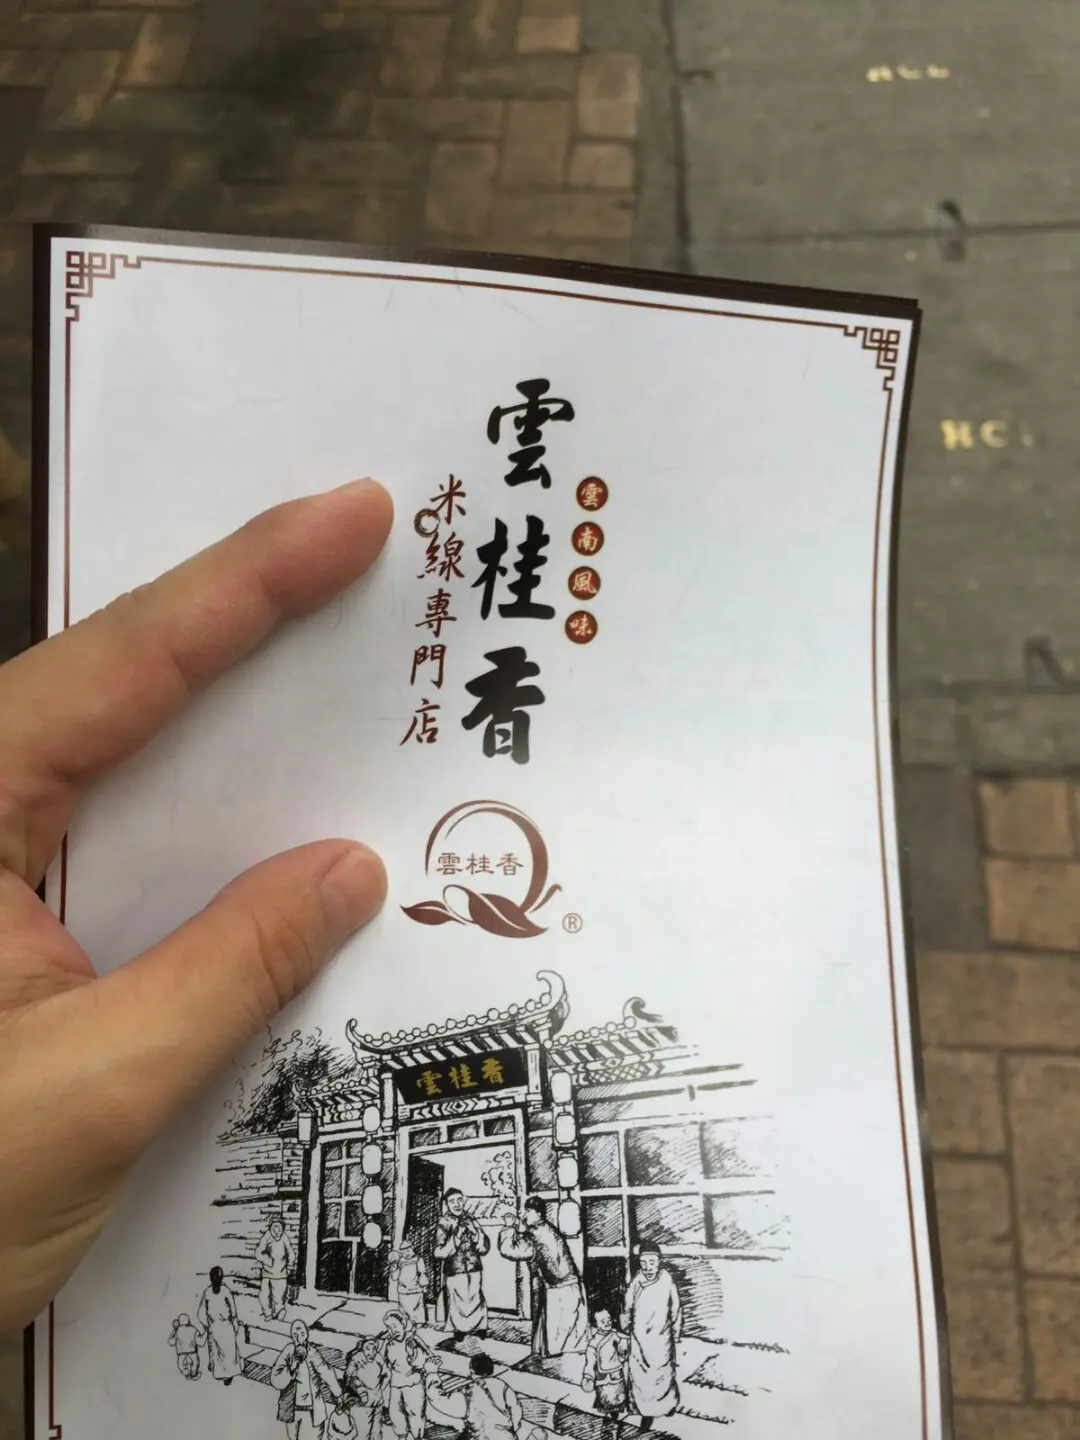 雲桂香
雲南風味
米線專門店
雲桂香
®
雲桂香